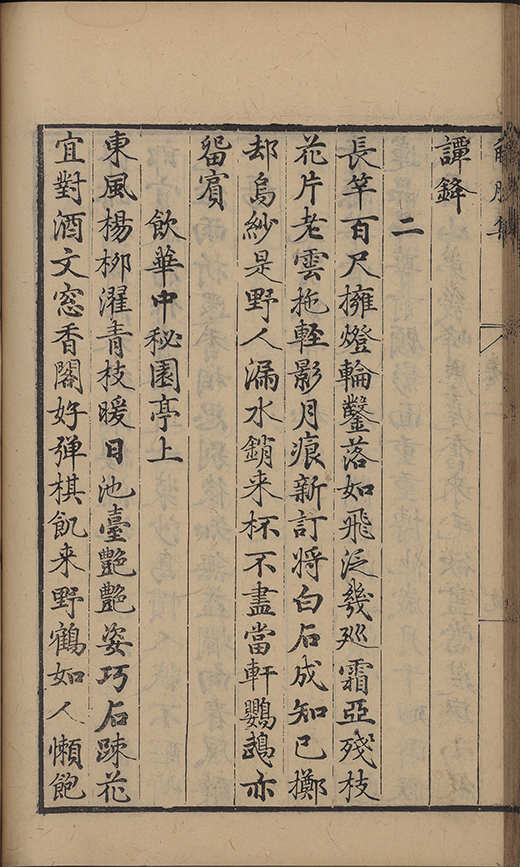 譚鋒
二
長竿百尺擁燈輪鑿落如飛泛幾廵霜亞殘枝
花片老雲拖輕影月痕新訂將白石成知已擲
却烏紗是野人漏水銷来杯不盡當軒鸚鵡亦
留賓
飲華中秘園亭上
東風楊柳濯青枝暖日池臺艷艷姿巧石踈花
宜對酒文窓香閣好弹棋飢来野鶴如人懶飽